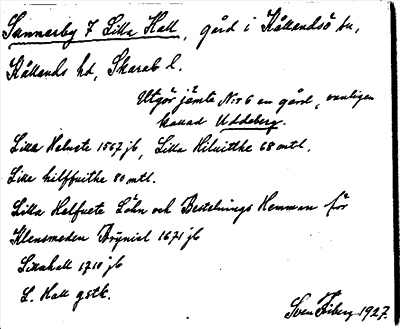 Sannerby 7 Lilla Hall, gård i Kållandsö sn,
Kållands hd, Skarab l.
Utgör jämte Nr 6 en gård, vanligen
kallad Uddeberg.
Lilla Haluete 1567 jb, Lilla Hiluittke 68 mtl.
Lille hilffuithe 80 mtl.
Lilla Halfuete Löhn och Bestelnings Hemman för
Klensmeden Brÿniel 1671 jb
Lillahall 1710 jb
L. Hall gstk.
Sven Friberg 1927.